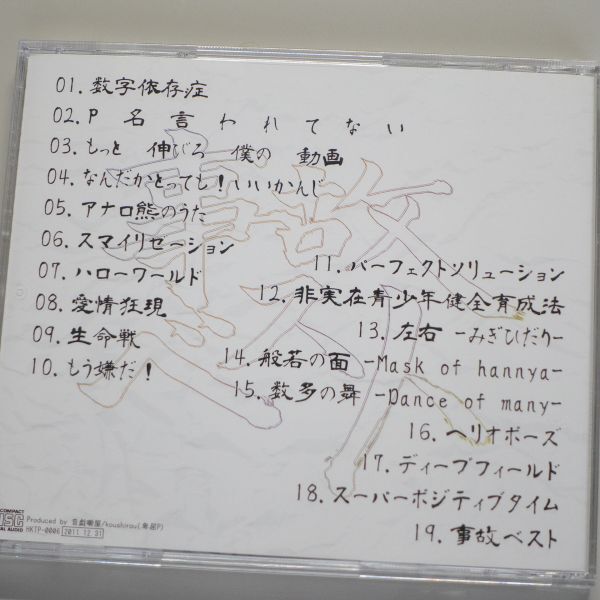 01. 数字依存症
02. P 名言われてない
03. もっと 伸びろ 僕の 動画
04. なんだかとっても！いいかんじ
05. アナロ熊のうた
06. スマイリゼーション
07. ハローワールド
08. 愛情狂現
09. 生命戦
10. もう嫌だ！
11. パーフェクトソリューション
12. 非実在青少年健全育成法
13. 左右 -みぎひだり-
14. 般若の面 -Mask of hannya-
15. 数多の舞 -Dance of many-
16. ヘリオポーズ
17. ディープフィールド
18. スーパーポジティブタイム
19. 事故ベスト
事故
ベスト
COMPACT
DISC
DIGITAL AUDIO
Produced by 音戯噺屋/koushirou(鬼屋P)
HKTP-0006 2011.12.31